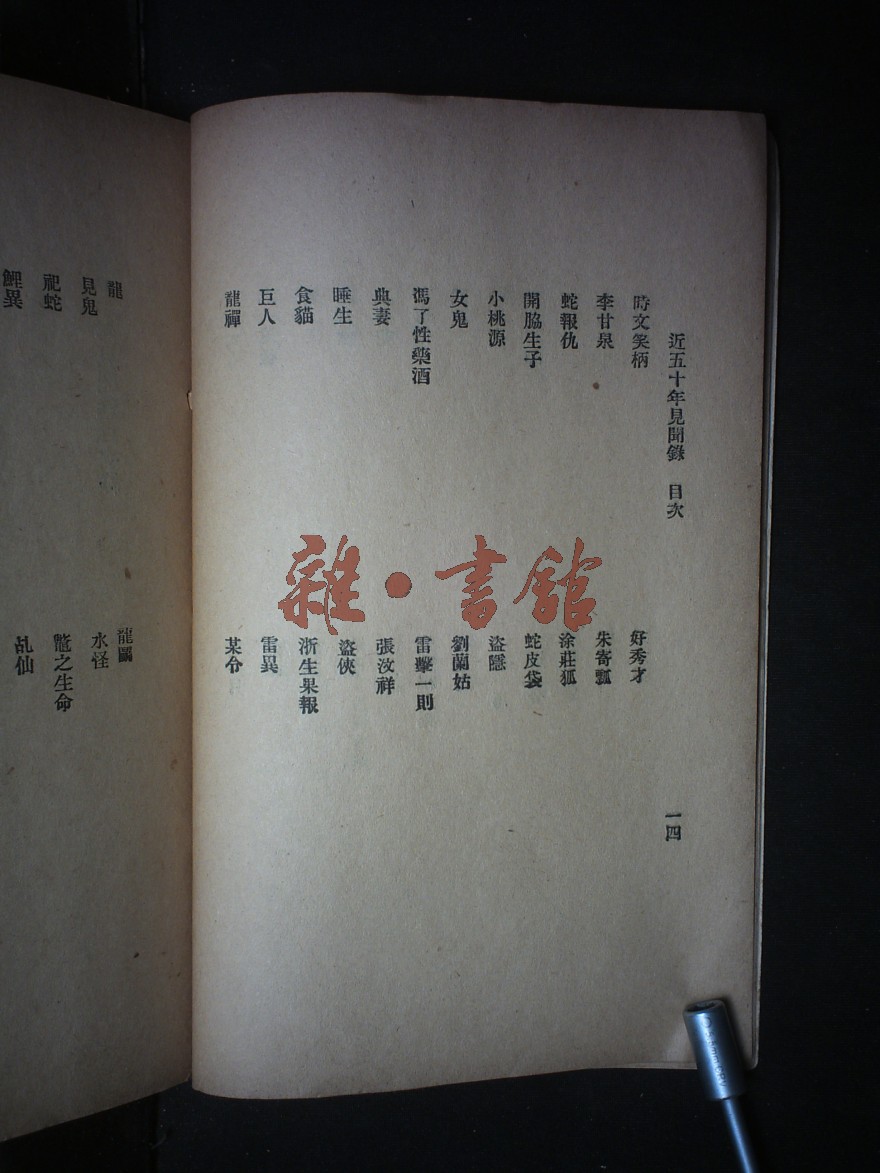 近五十年見聞錄 目次
一四
時文笑柄
好秀才
李甘泉
朱寄瓢
蛇報仇
涂莊狐
開脇生子
蛇皮袋
小桃源
盜隱
女鬼
劉蘭姑
馮了性藥酒
雷擊一則
典妻
張汶祥
睡生
盜俠
食貓
浙生果報
巨人
雷異
龍禪
某令
雜·書館
龍
龍鬭
見鬼
水怪
祀蛇
鼈之生命
鯉異
乩仙